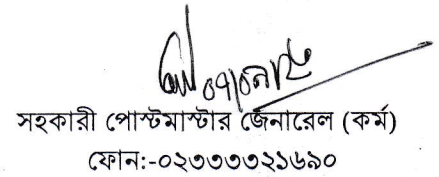 সহকারী পোস্টমাস্টার জেনারেল (কর্ম)
ফোন:-০২৩৩৩৩২১৬৯০